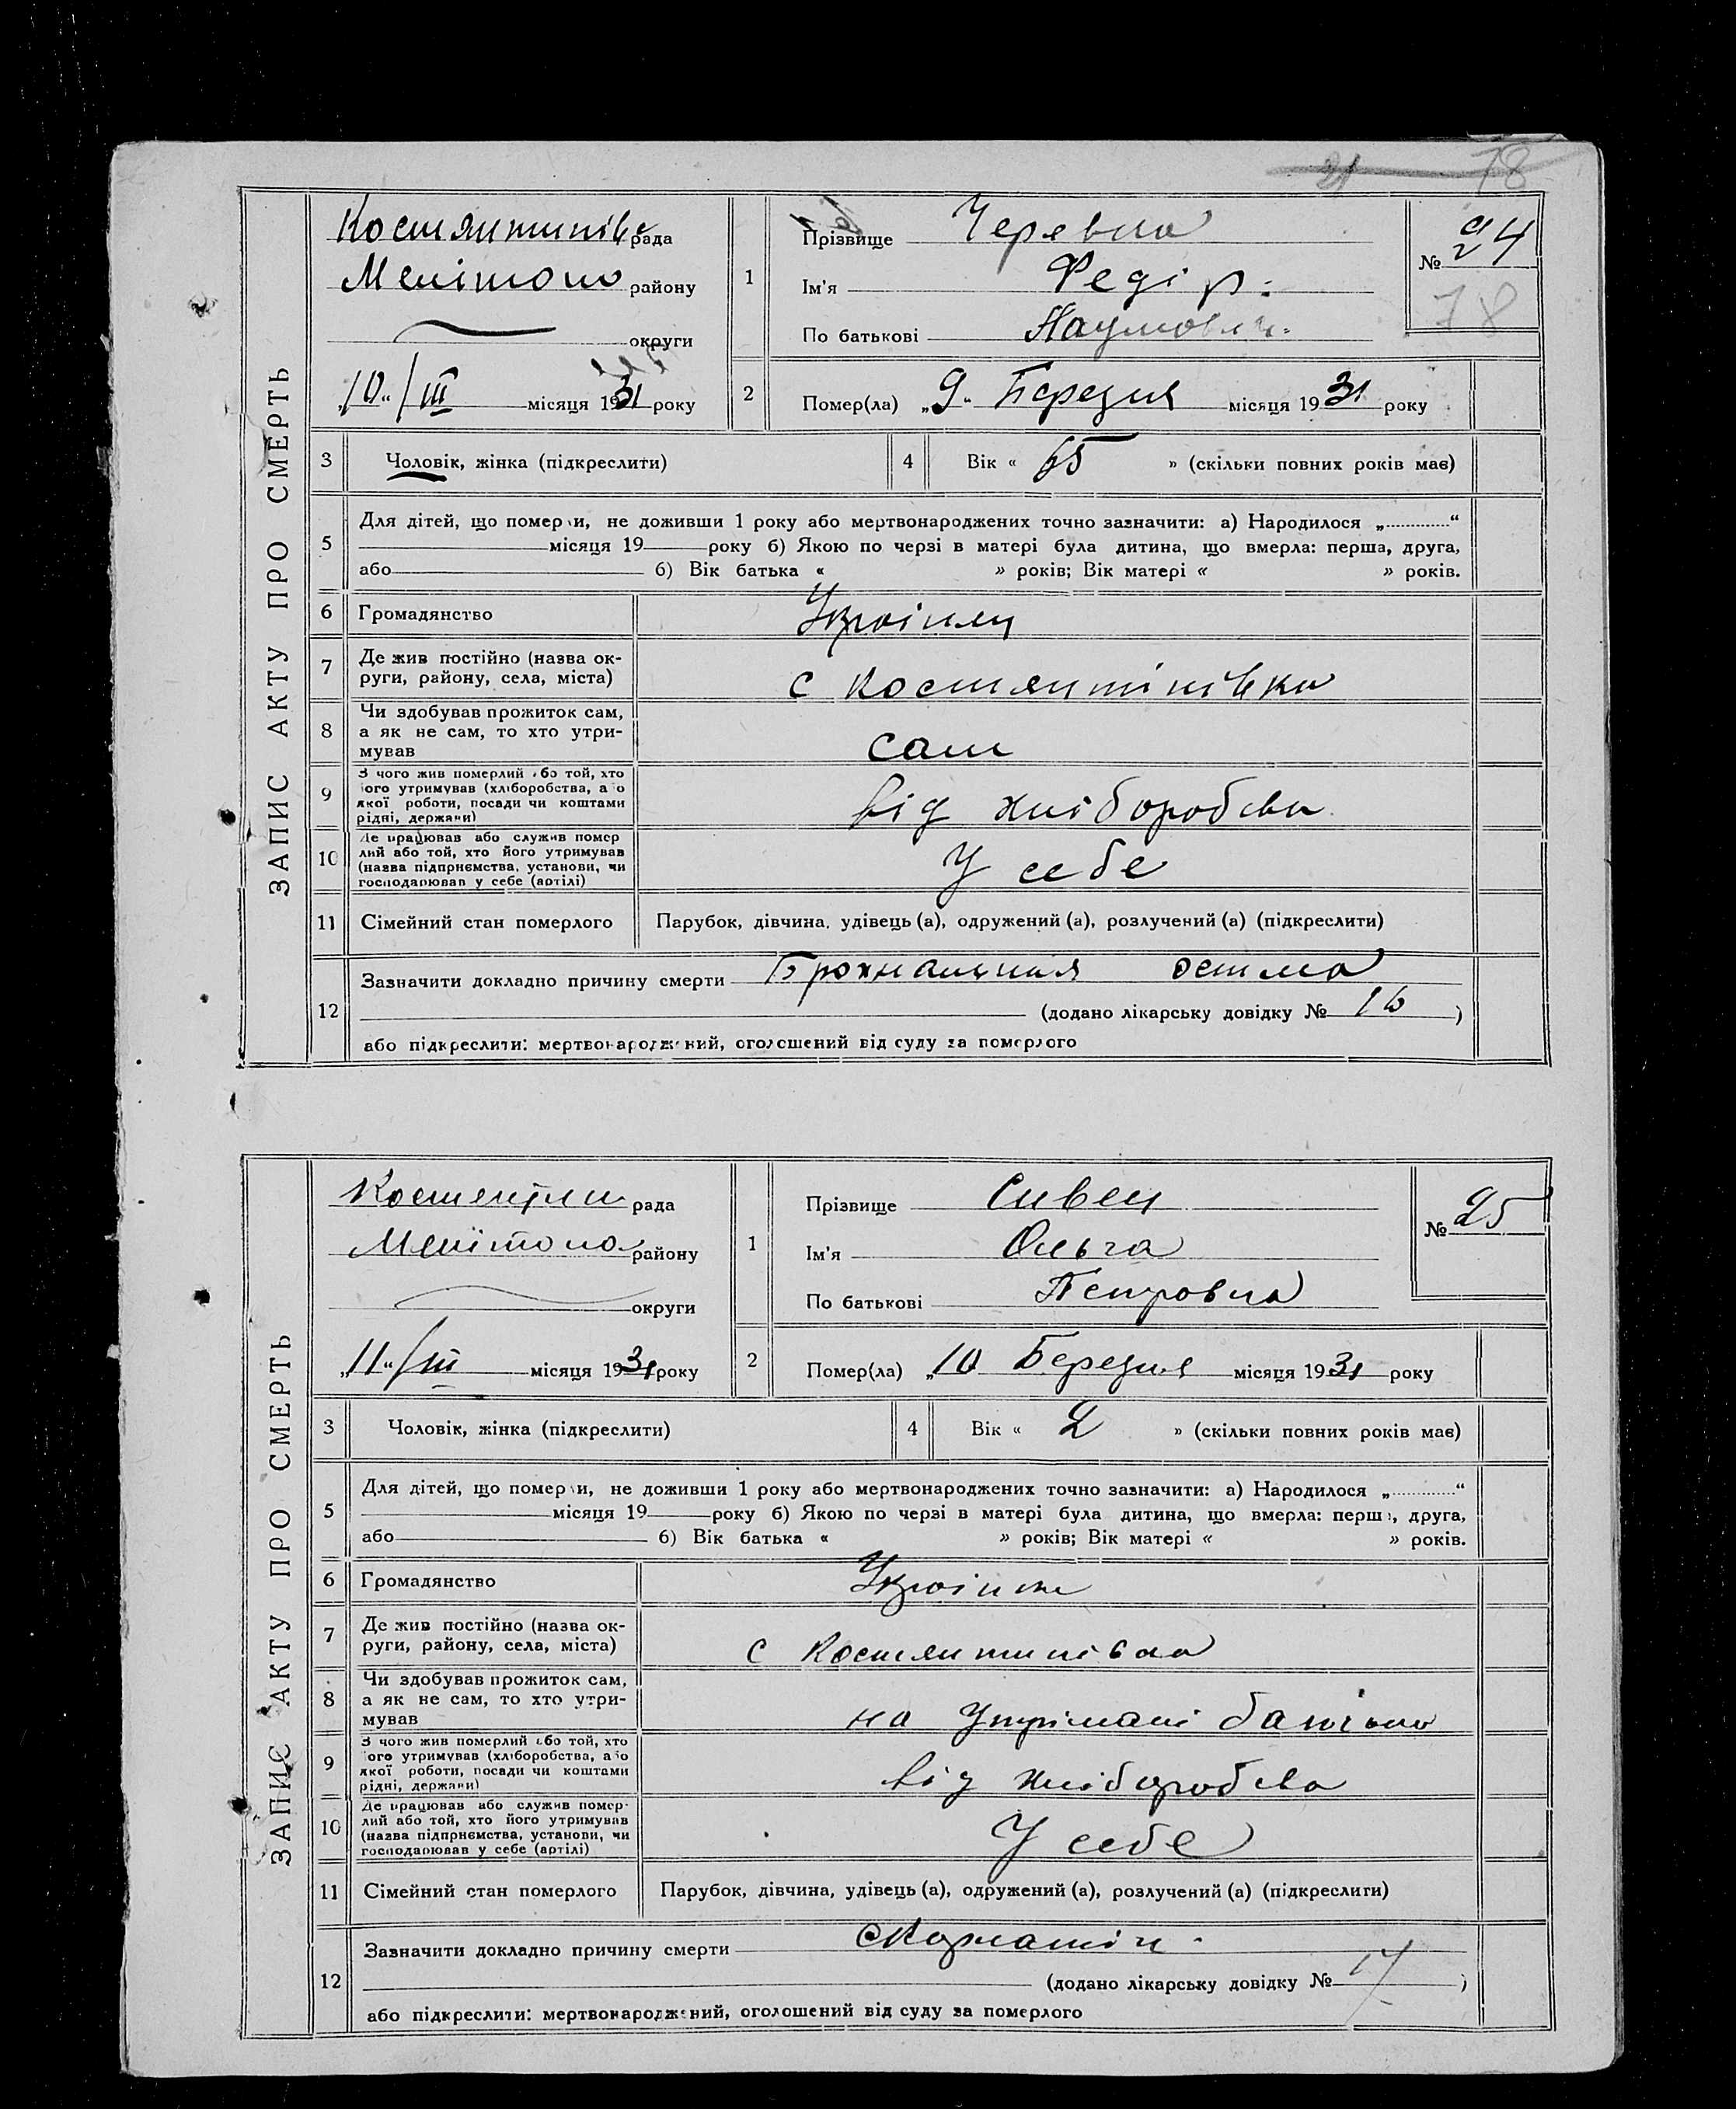 78
ЗАПИС АКТУ ПРО СМЕРТЬ
Костянтинівс рада
Мелітопо району
округи
„10“/III місяця 1931 року
1
Прізвище Черевко
Ім'я Федір
По батькові Наумович
№ 24
78
2
Помер(ла) „9“ Березня місяця 1931 року
3 Чоловік, жінка (підкреслити)
4 Вік « 65 » (скільки повних років має)
5 Для дітей, що померли, не доживши 1 року або мертвонароджених точно зазначити: а) Народилося „ “
місяця 19 року б) Якою по черзі в матері була дитина, що вмерла: перша, друга,
або б) Вік батька « » років; Вік матері « » років.
6 Громадянство Українец
7 Де жив постійно (назва ок-
руги, району, села, міста) с Костянтінівка
8 Чи здобував прожиток сам,
а як не сам, то хто утри-
мував сам
9 З чого жив померлий або той, хто
його утримував (хліборобства, або
якої роботи, посади чи коштами
рідні, держави) від хліборобства
10 Де працював або служив помер
лий або той, хто його утримував
(назва підприємства, установи, чи
господарював у себе (артілі) У себе
11 Сімейний стан померлого Парубок, дівчина, удівець (а), одружений (а), розлучений (а) (підкреслити)
12 Зазначити докладно причину смерти астма
(додано лікарську довідку № 16 )
або підкреслити: мертвонароджений, оголошений від суду за померлого
ЗАПИС АКТУ ПРО СМЕРТЬ
рада
Мелітопо району
округи
„11“/III місяця 1931 року
1
Прізвище Сивец
Ім'я Ольга
По батькові Петровна
№ 25
2
Помер(ла) „10 Березня місяця 1931 року
3 Чоловік, жінка (підкреслити)
4 Вік « 2 » (скільки повних років має)
5 Для дітей, що померли, не доживши 1 року або мертвонароджених точно зазначити: а) Народилося „ “
місяця 19 року б) Якою по черзі в матері була дитина, що вмерла: перша, друга,
або б) Вік батька « » років; Вік матері « » років.
6 Громадянство Українка
7 Де жив постійно (назва ок-
руги, району, села, міста) с Костянтинівка
8 Чи здобував прожиток сам,
а як не сам, то хто утри-
мував на утрімані батька
9 З чого жив померлий або той, хто
його утримував (хліборобства, або
якої роботи, посади чи коштами
рідні, держави) від хліборобства
10 Де працював або служив помер-
лий або той, хто його утримував
(назва підприємства, установи, чи
господарював у себе (артілі) У себе
11 Сімейний стан померлого Парубок, дівчина, удівець (а), одружений (а), розлучений (а) (підкреслити)
12 Зазначити докладно причину смерти Скорлатін
(додано лікарську довідку № 17 )
або підкреслити: мертвонароджений, оголошений від суду за померлого